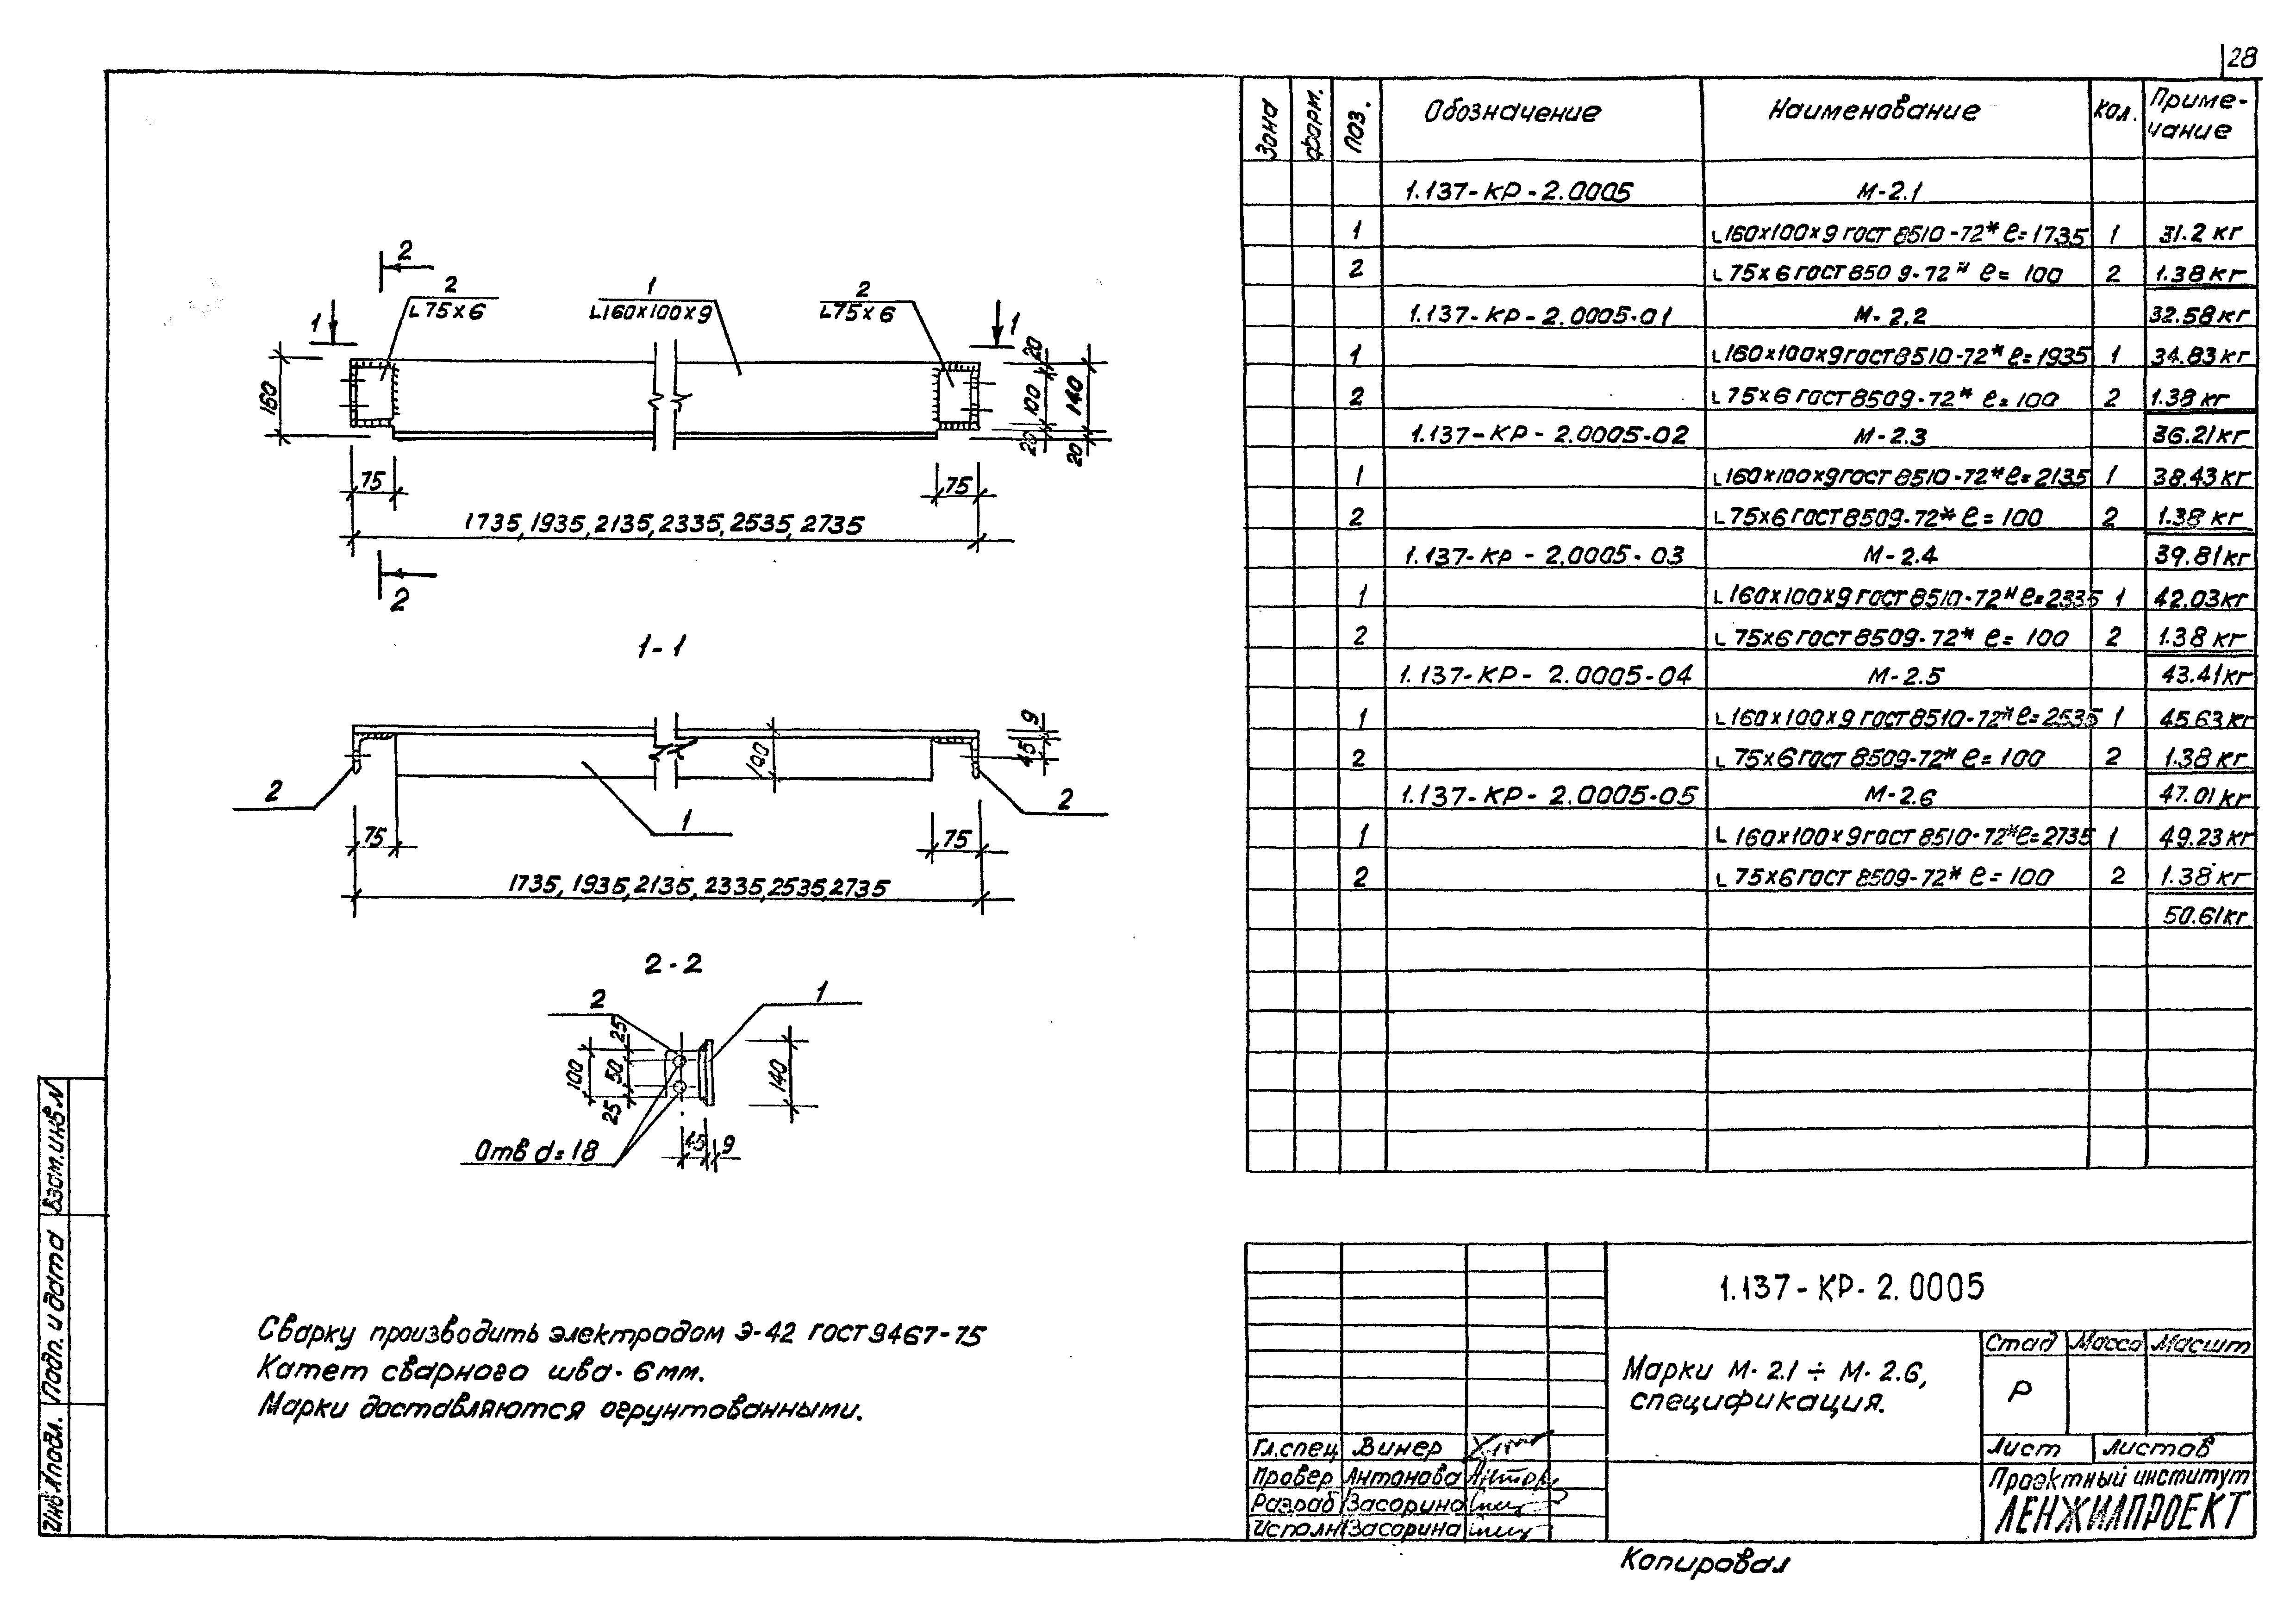 28
2
2
L75×6
1
L160×100×9
2
L75×6
1
1
160
20
100
20
140
20
75
75
1735, 1935, 2135, 2335, 2535, 2735
2
1-1
9
45
100
2
2
1
75
75
1735, 1935, 2135, 2335, 2535, 2735
2-2
2
1
25
50
25
100
140
Отв d=18
45
9
Сварку производить электродом Э-42 ГОСТ 9467-75
Катет сварного шва - 6 мм.
Марки доставляются огрунтованными.
Зона
форм.
поз.
Обозначение
Наименование
кол.
Приме-
чание
1.137-КР-2.0005 М-2.1
1 L160×100×9 ГОСТ 8510-72* ℓ=1735 1 31.2 кг
2 L75×6 ГОСТ 8509-72* ℓ=100 2 1.38 кг
1.137-КР-2.0005-01 М-2.2 32.58 кг
1 L160×100×9 ГОСТ 8510-72* ℓ=1935 1 34.83 кг
2 L75×6 ГОСТ 8509-72* ℓ=100 2 1.38 кг
1.137-КР-2.0005-02 М-2.3 36.21 кг
1 L160×100×9 ГОСТ 8510-72* ℓ=2135 1 38.43 кг
2 L75×6 ГОСТ 8509-72* ℓ=100 2 1.38 кг
1.137-КР-2.0005-03 М-2.4 39.81 кг
1 L160×100×9 ГОСТ 8510-72* ℓ=2335 1 42.03 кг
2 L75×6 ГОСТ 8509-72* ℓ=100 2 1.38 кг
1.137-КР-2.0005-04 М-2.5 43.41 кг
1 L160×100×9 ГОСТ 8510-72* ℓ=2535 1 45.63 кг
2 L75×6 ГОСТ 8509-72* ℓ=100 2 1.38 кг
1.137-КР-2.0005-05 М-2.6 47.01 кг
1 L160×100×9 ГОСТ 8510-72* ℓ=2735 1 49.23 кг
2 L75×6 ГОСТ 8509-72* ℓ=100 2 1.38 кг
50.61 кг
1.137-КР-2.0005
Марки М-2.1 ÷ М-2.6,
спецификация.
Стад Масса Масшт
Р
Лист Листов
Проектный институт
ЛЕНЖИЛПРОЕКТ
Гл.спец Винер
Провер Антонова
Разраб Засорина
Исполн Засорина
Копировал
Взам.инв.N
Подп. и дата
Инв.Nподл.